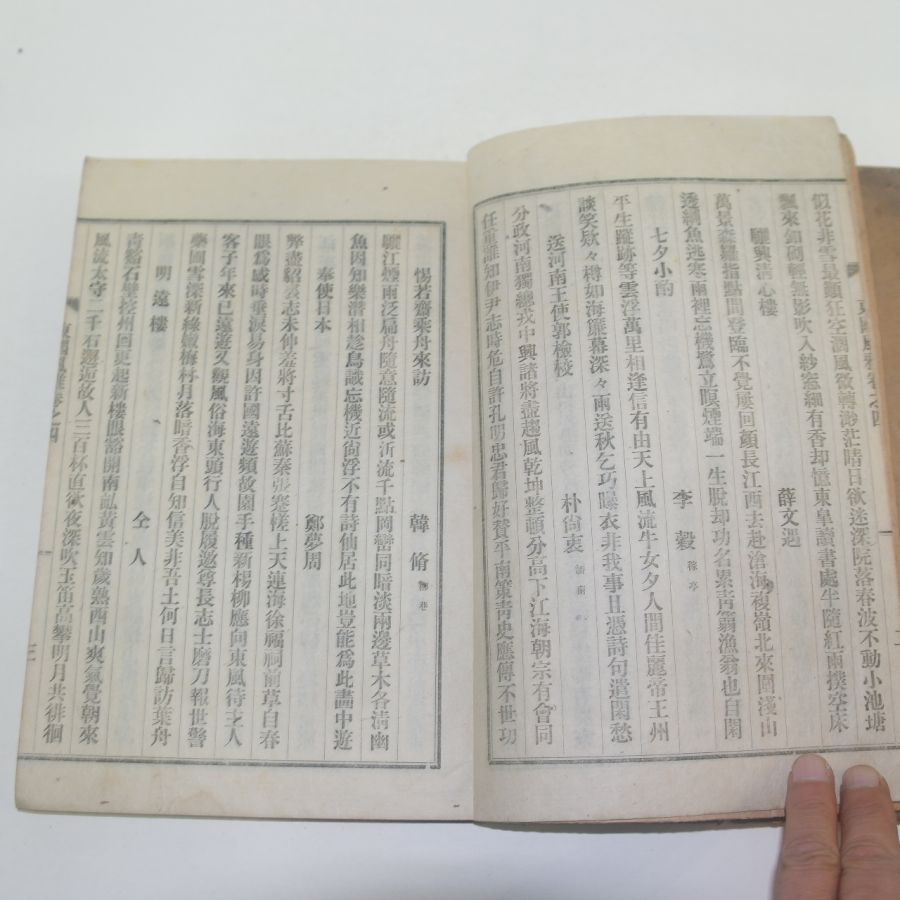 似花非雪最顚狂空濶風微轉渺茫晴日欲迷深院落春波不動小池塘
飄來鉛砌輕無影吹入紗窓細有香却憶東皐讀書處半隨紅雨撲空床
驪興淸心樓 薛文遇
萬景森羅指點間登臨不覺屢回顏長江西去赴滄海複嶺北來圍淺山
透網魚逃寒雨裡忘機鷺立暝煙端一生脫却功名累靑篛漁翁也自閑
七夕小酌 李穀 稼亭
平生蹤跡等雲浮萬里相逢信有由天上風流牛女夕人間佳麗帝王州
談笑欵々樽如海簾幕深々雨送秋乞巧曝衣非我事且憑詩句遣閑愁
送河南王使郭檢校 朴尙衷
分政河南獨總戎中興諸將盡趨風乾坤整頓分高下江海朝宗有會同
任重誰知伊尹志時危自許孔明忠君歸好贊平南策靑史應傳不世功
東國風雅卷之四
惕若齋乘舟來訪 韓脩 柳巷
驪江煙雨泛扁舟隨意隨流或泝流千點岡巒同暗淡兩邊草木各淸幽
魚因知樂潛相趁鳥識忘機近尙浮不有詩仙居此地豈能爲此畵中遊
奉使日本 鄭夢周
弊盡貂裘志未伸羞將寸舌比蘇秦張騫槎上天連海徐福祠前草自春
眼爲感時垂淚易身因許國遠遊頻故園手種新楊柳應向東風待主人
客子年來已遠遊又觀風俗海東頭行人脫履邀尊長志士磨刀報世讐
藥圃雪深新綠嫩梅村月落暗香浮自知信美非吾土何日言歸訪葉舟
明遠樓 仝人
靑谿石壁抱州回更起新樓眼豁開南畝黃雲知歲熟西山爽氣覺朝來
風流太守二千石邂逅故人三百杯直欲夜深吹玉笛高攀明月共徘徊
東國風雅卷之四
三